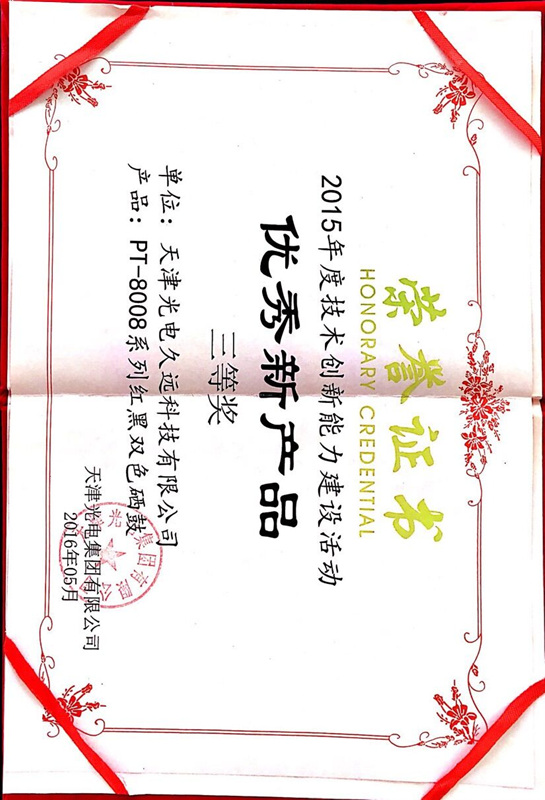 荣誉证书
HONORARY CREDENTIAL
2015年度技术创新能力建设活动
优秀新产品
三等奖
单位：天津光电久远科技有限公司
产品：PT-8008系列红黑双色硒鼓
天津光电集团有限公司
2016年05月